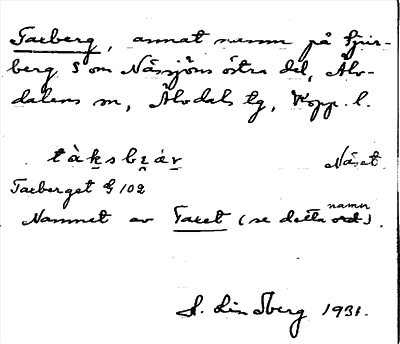 Taxberg, annat namn på Fjur-
berg S om Nässjöns östra del, Älv-
dalens sn, Älvdals tg, Kopp. l.
tàksbær Näset
Taxberget G 102
namn
Namnet av Taxet (se detta ord).
S. Lindberg 1931.